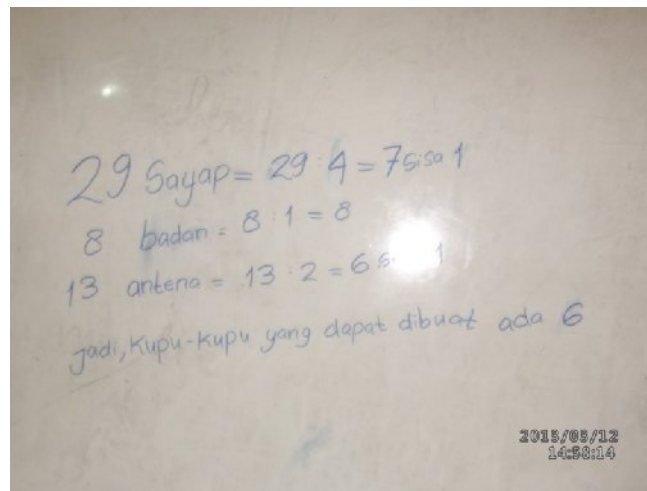 29 Sayap = 29 : 4 = 7 sisa 1
8 badan = 8 : 1 = 8
13 antena = 13 : 2 = 6 1
jadi, Kupu-kupu yang dapat dibuat ada 6
2015/05/12
14:58:14